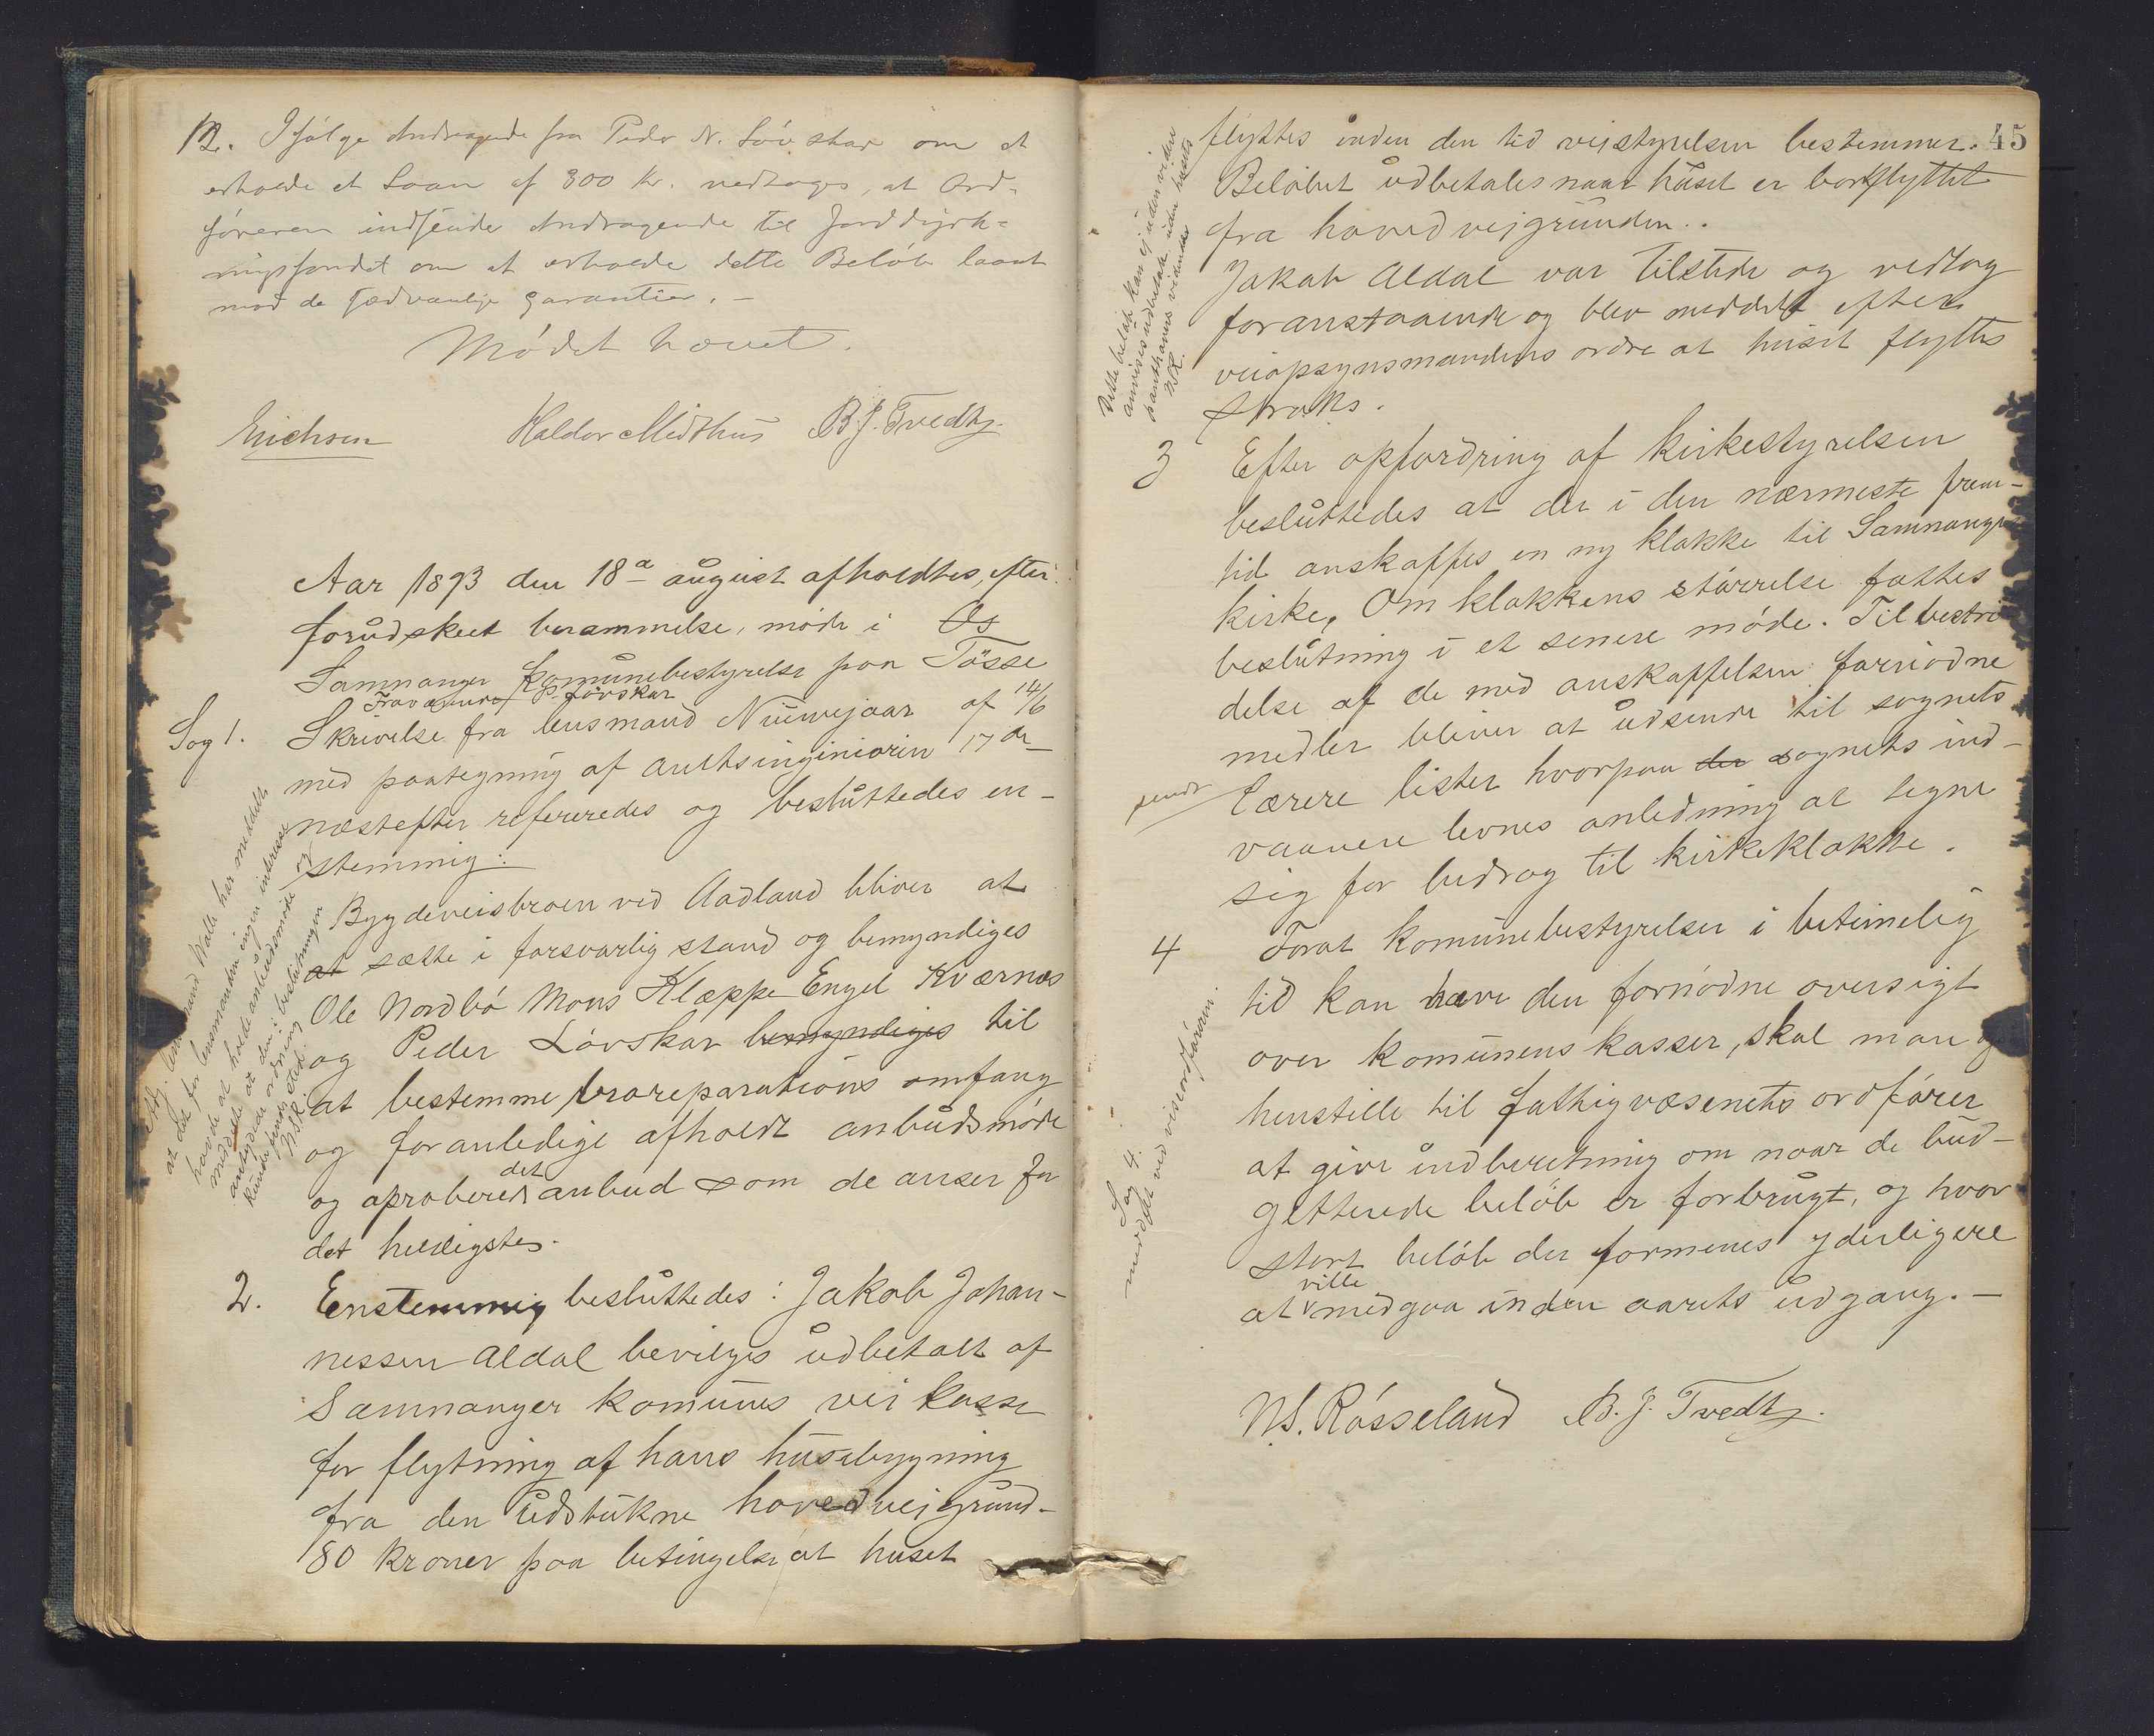 12. Ifølge Andragende fra Peder N. Løvskar om at
erholde et Laan af 300 Kr. vedtoges, at Ord-
føreren indsender Andragende til Jorddyrk-
ningsfondet om at erholde dette Beløb laant
mod de sædvanlige Garantier. -
Mødet hævet.
Erichsen Haldor Midthus B. J. Tvedt
Aar 1893 den 18de august afholdtes, efter
forudskeet berammelse, møde i Os
Samnanger Komunebestyrelse paa Tøsse
Fraværende P. Løvskar
Sag 1. Skrivelse fra lensmand Nummejaar af 14/6
med paategning af amtsingeniøren 17de
næstefter refereredes og besluttedes en-
stemmig:
Bygdeveisbroen ved Aadland bliver at
at sætte i forsvarlig stand og bemyndiges
Ole Nordbø Mons Klæppe Engel Kværnes
og Peder Løvskar bemyndiges til
at bestemme broreparations omfang
og foranledige afholdt anbudsmøde
og aproberer det anbud som de anser for
det heldigstes.
at det for lensmanden ingen interesse
havde at holde anbudsmøde og
2. Enstemmig besluttedes: Jakob Johan-
nessen Aldal beviljes udbetalt af
Samnanger komunes vei kasse
for flytning af hans husebygning
fra den udstukne hovedveigrund-
80 kroner paa betingelse at huset
45
flyttes inden den tid vejstyrelsen bestemmer.
Beløbet udbetales naar huset er bortflyttet
fra hovedvejgrunden..
Jakob Aldal var tilstede og vedtog
foranstaaende og blev meddelt efter
veiopsynsmandens ordre at huset flyttes
straks.
Dette beløb kan ej uden videre
anvises udbetalt uden husets
panthavers vidende
NSR.
3 Efter opfordring af kirkestyrelsen
besluttedes at der i den nærmeste frem-
tid anskaffes en ny klokke til Samnanger
kirke, Om klokkens størrelse fattes
beslutning i et senere møde. Til bestri
delse af de med anskaffelsen fornødne
medler bliver at udsende til sognets
lærere lister hvorpaa der sognets ind-
vaanere levnes anledning at tegne
sig for bidrag til kirkeklokke.
sendt
4 Forat komunebestyrelsen i betimelig
tid kan have den fornødne oversigt
over komunens kasser, skal man og
henstille til fattigvæsenets ordfører
at give indberetning om naar de bud-
getterede beløb er forbrugt, og hvor
stort beløb der formenes yderligere
at ville medgaa inden aarets udgang. -
Sag 4.
meddelt ved viseordføreren.
N.S. Røsseland B. J. Tvedt